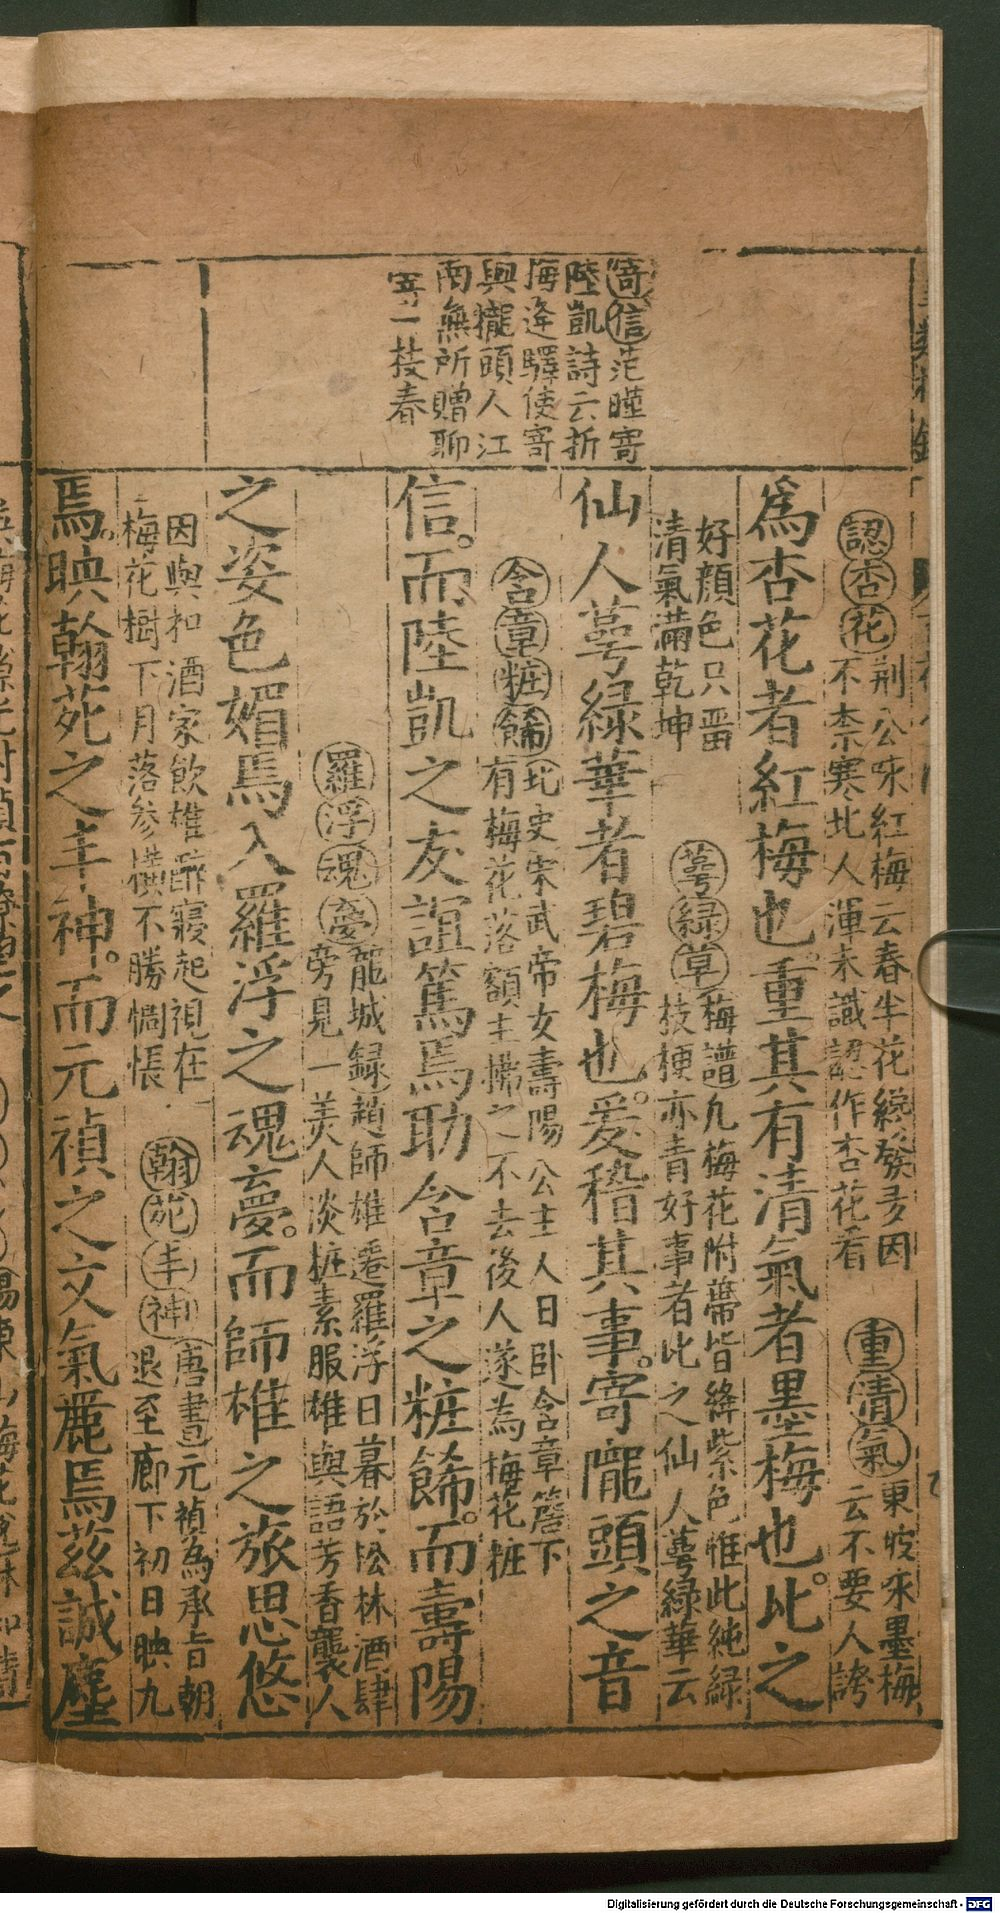 寄信范曄寄
陸凱詩云折
梅逢驛使寄
與隴頭人江
南無所贈聊
寄一枝春
認杏花荆公咏紅梅云春半花纔發多因
不柰寒北人渾未識認作杏花看
重清氣東坡來墨梅
云不要人誇
爲杏花者紅梅也重其有清氣者墨梅也。比之
好顏色只畱
清氣滿乾坤
萼綠草梅譜凡梅花附蔕皆絳紫色惟此純綠
枝梗亦青好事者比之仙人萼綠華云
仙人萼綠華者碧梅也。爰稽其事。寄隴頭之音
含章粧餙北史宋武帝女壽陽公主人日卧含章簷下
有梅花落額主拂之不去後人遂為梅花粧
信。而陸凱之友誼篤焉助含章之粧餙。而壽陽
羅浮魂夢龍城録趙師雄遷羅浮日暮於松林酒肆
旁見一美人淡粧素服雄與語芳香襲人
之姿色媚焉入羅浮之魂夢。而師雄之旅思悠
因與扣酒家飲雄醉寢起視在
梅花樹下月落參横不勝惆悵
翰苑丰神唐書元禎為承旨朝
退至廊下初日映九
焉。映翰苑之丰神。而元禎之文氣麗焉茲誠塵
Digitalisierung gefördert durch die Deutsche Forschungsgemeinschaft - DFG